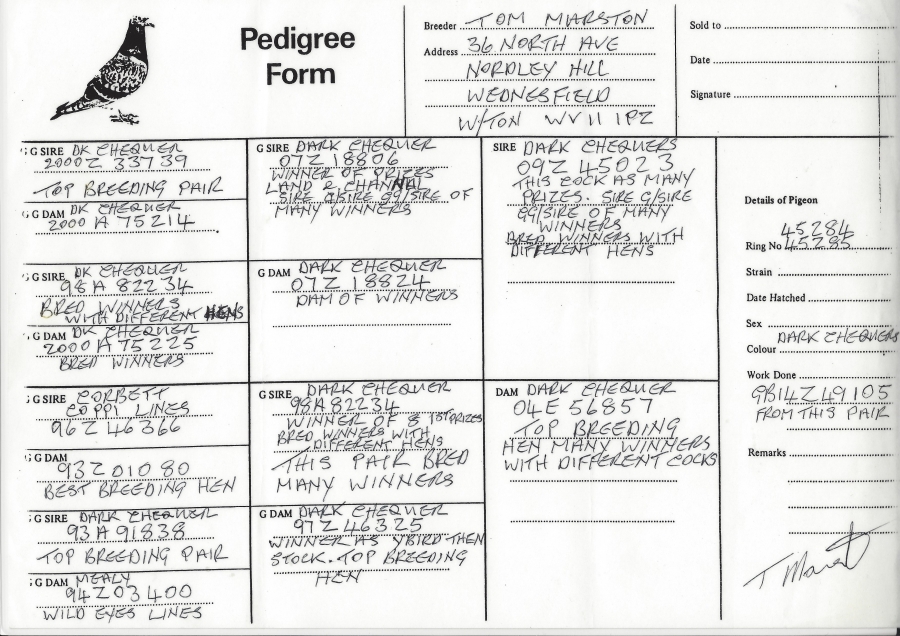 Pedigree
Form
Breeder TOM MARSTON
Address 36 NORTH AVE
NORDLEY HILL
WEDNESFIELD
W/TON WV11 1PZ
Sold to
Date
Signature
G G SIRE DK CHEQUER
2000Z 33739
TOP BREEDING PAIR
G G DAM DK CHEQUER
2000 A 75214
G G SIRE DK CHEQUER
98A 82234
BRED WINNERS
WITH DIFFERENT HENS
G G DAM DK CHEQUER
2000 A 75225
BRED WINNERS
G G SIRE CORBETT
COPPI LINES
96Z 46366
G G DAM
93Z01080
BEST BREEDING HEN
G G SIRE DARK CHEQUER
93A 91838
TOP BREEDING PAIR
G G DAM MEALY
94Z03400
WILD EYES LINES
G SIRE DARK CHEQUER
07Z 18806
WINNER OF PRIZES
LAND & CHANNAL
SIRE G/SIRE GG/SIRE OF
MANY WINNERS
G DAM DARK CHEQUER
07Z 18824
DAM OF WINNERS
G SIRE DARK CHEQUER
98A82234
WINNER OF 8 1ST PRIZES
BRED WINNERS WITH
DIFFERENT HENS
THIS PAIR BRED
MANY WINNERS
G DAM DARK CHEQUER
97Z46325
WINNER AS YBIRD THEN
STOCK. TOP BREEDING
HEN
SIRE DARK CHEQUERS
09Z 45023
THIS COCK AS MANY
PRIZES. SIRE G/SIRE
GG/SIRE OF MANY
WINNERS
BRED WINNERS WITH
DIFFERENT HENS
DAM DARK CHEQUER
04E 56857
TOP BREEDING
HEN MANY WINNERS
WITH DIFFERENT COCKS
Details of Pigeon
45284
Ring No 45285
Strain
Date Hatched
Sex
DARK CHEQUERS
Colour
Work Done
GB14Z49105
FROM THIS PAIR
Remarks
T Marston